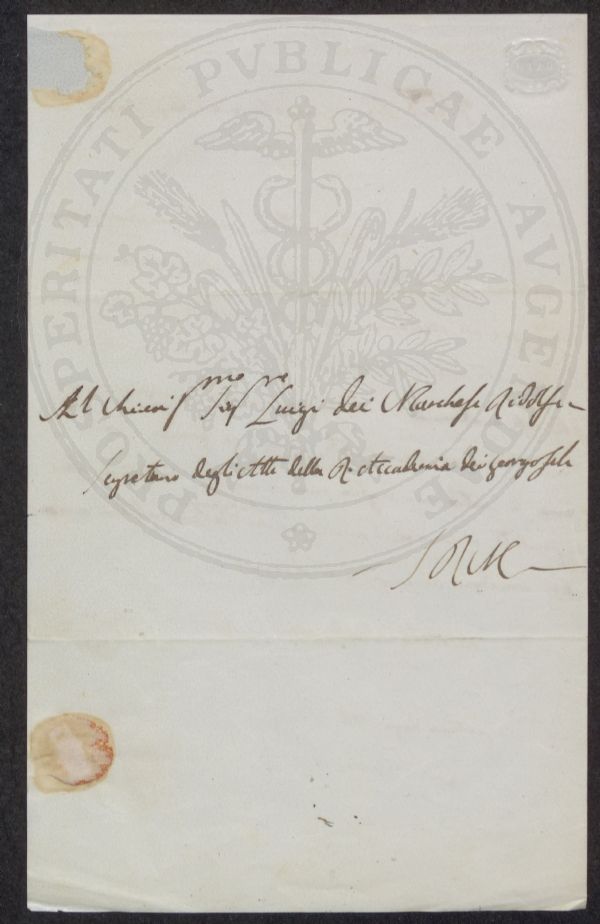 PROSPERITATI PVBLICAE AVGENDAE
Al Chiaris.mo Sig.re Luigi dei Marchesi Ridolfi
Segretario degli Atti della R. Accademia dei Georgofili
S R M